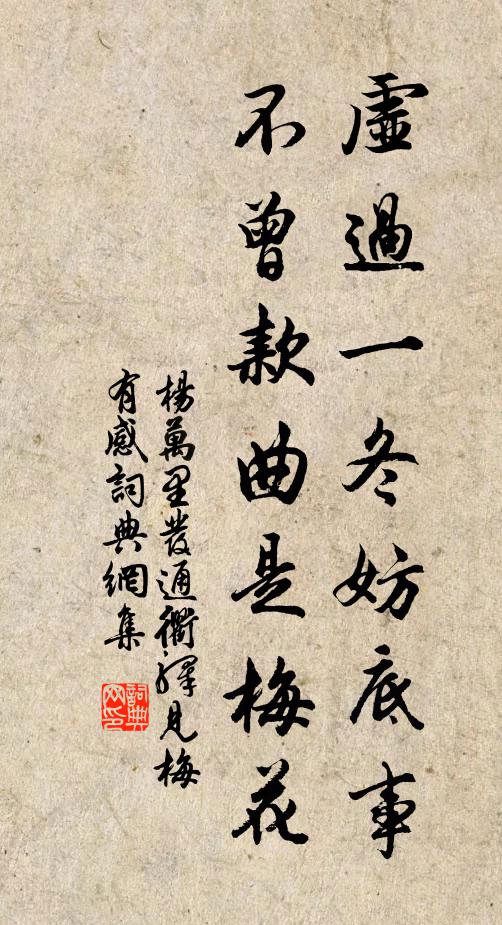 虛過一冬妨底事
不曾款曲是梅花
楊萬里發通衢驛見梅
有感詞典網集
詞典網印